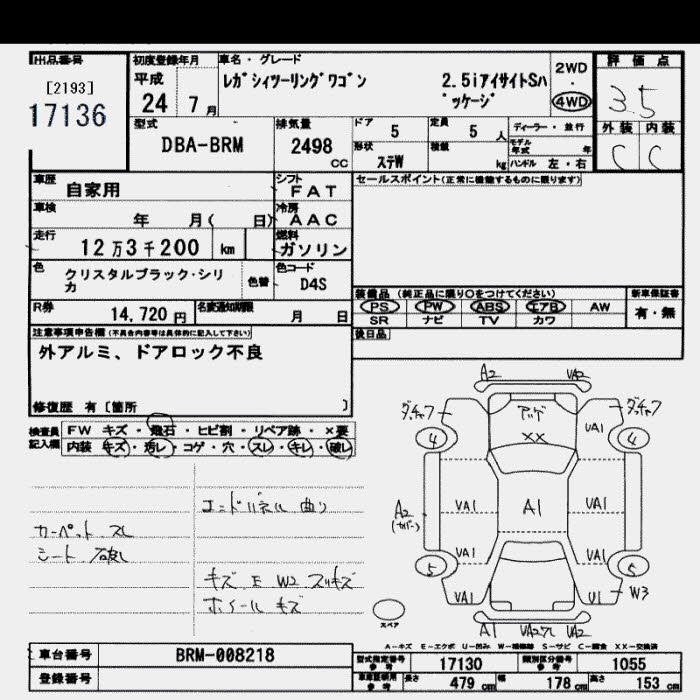 出品番号
[2193]
17136
初度登録年月
平成
24 7 月
車名・グレード
レガシィツーリングワゴン 2.5iアイサイトSハ
゚ッケージ
2WD
4WD
評価点
3.5
外装 内装
C C
型式
DBA-BRM
排気量
2498 cc
ドア 5
定員 5 人
ディーラー・並行
形状 ステW
積載 kg
モデル年式 年
ハンドル 左・右
車歴 自家用
シフト FAT
車検 年 月( 日)
冷房 AAC
走行 12万3千200 km
燃料 ガソリン
色 クリスタルブラック・シリカ
色替
色コード D4S
R券 14,720 円
名変通知期限 月 日
セールスポイント(正常に機能するものに限ります)
装備品 (純正品に限り○をつけてください)
新車保証書
PS PW ABS エアB AW
有・無
SR ナビ TV カワ
後日品
注意事項申告欄(不具合内容等は具体的に記入して下さい)
外アルミ、ドアロック不良
修復歴 有 [箇所 ]
検査員記入欄
FW キズ・飛石・ヒビ割・リペア跡・×要
内装 キズ・汚レ・コゲ・穴・スレ・キレ・破レ
エンドパネル 曲り
カーペット スレ
シート 破レ
キズ E W2 スリキズ
ホイール キズ
A2 VA2
アッゲ
××
VA1
4 4
A2
(カバー)
VA1 A1 VA1
VA1 VA1
5 5
VA1 U1 W3
A1 VA2 VA2
スペア
A-キズ E-エクボ U-凹み W-補修跡 S-サビ C-腐食 XX-交換済
車台番号 BRM-008218
登録番号
型式指定番号 参考 17130
類別区分番号 参考 1055
車庫証明用 参考 長さ 479 cm 幅 178 cm 高さ 153 cm